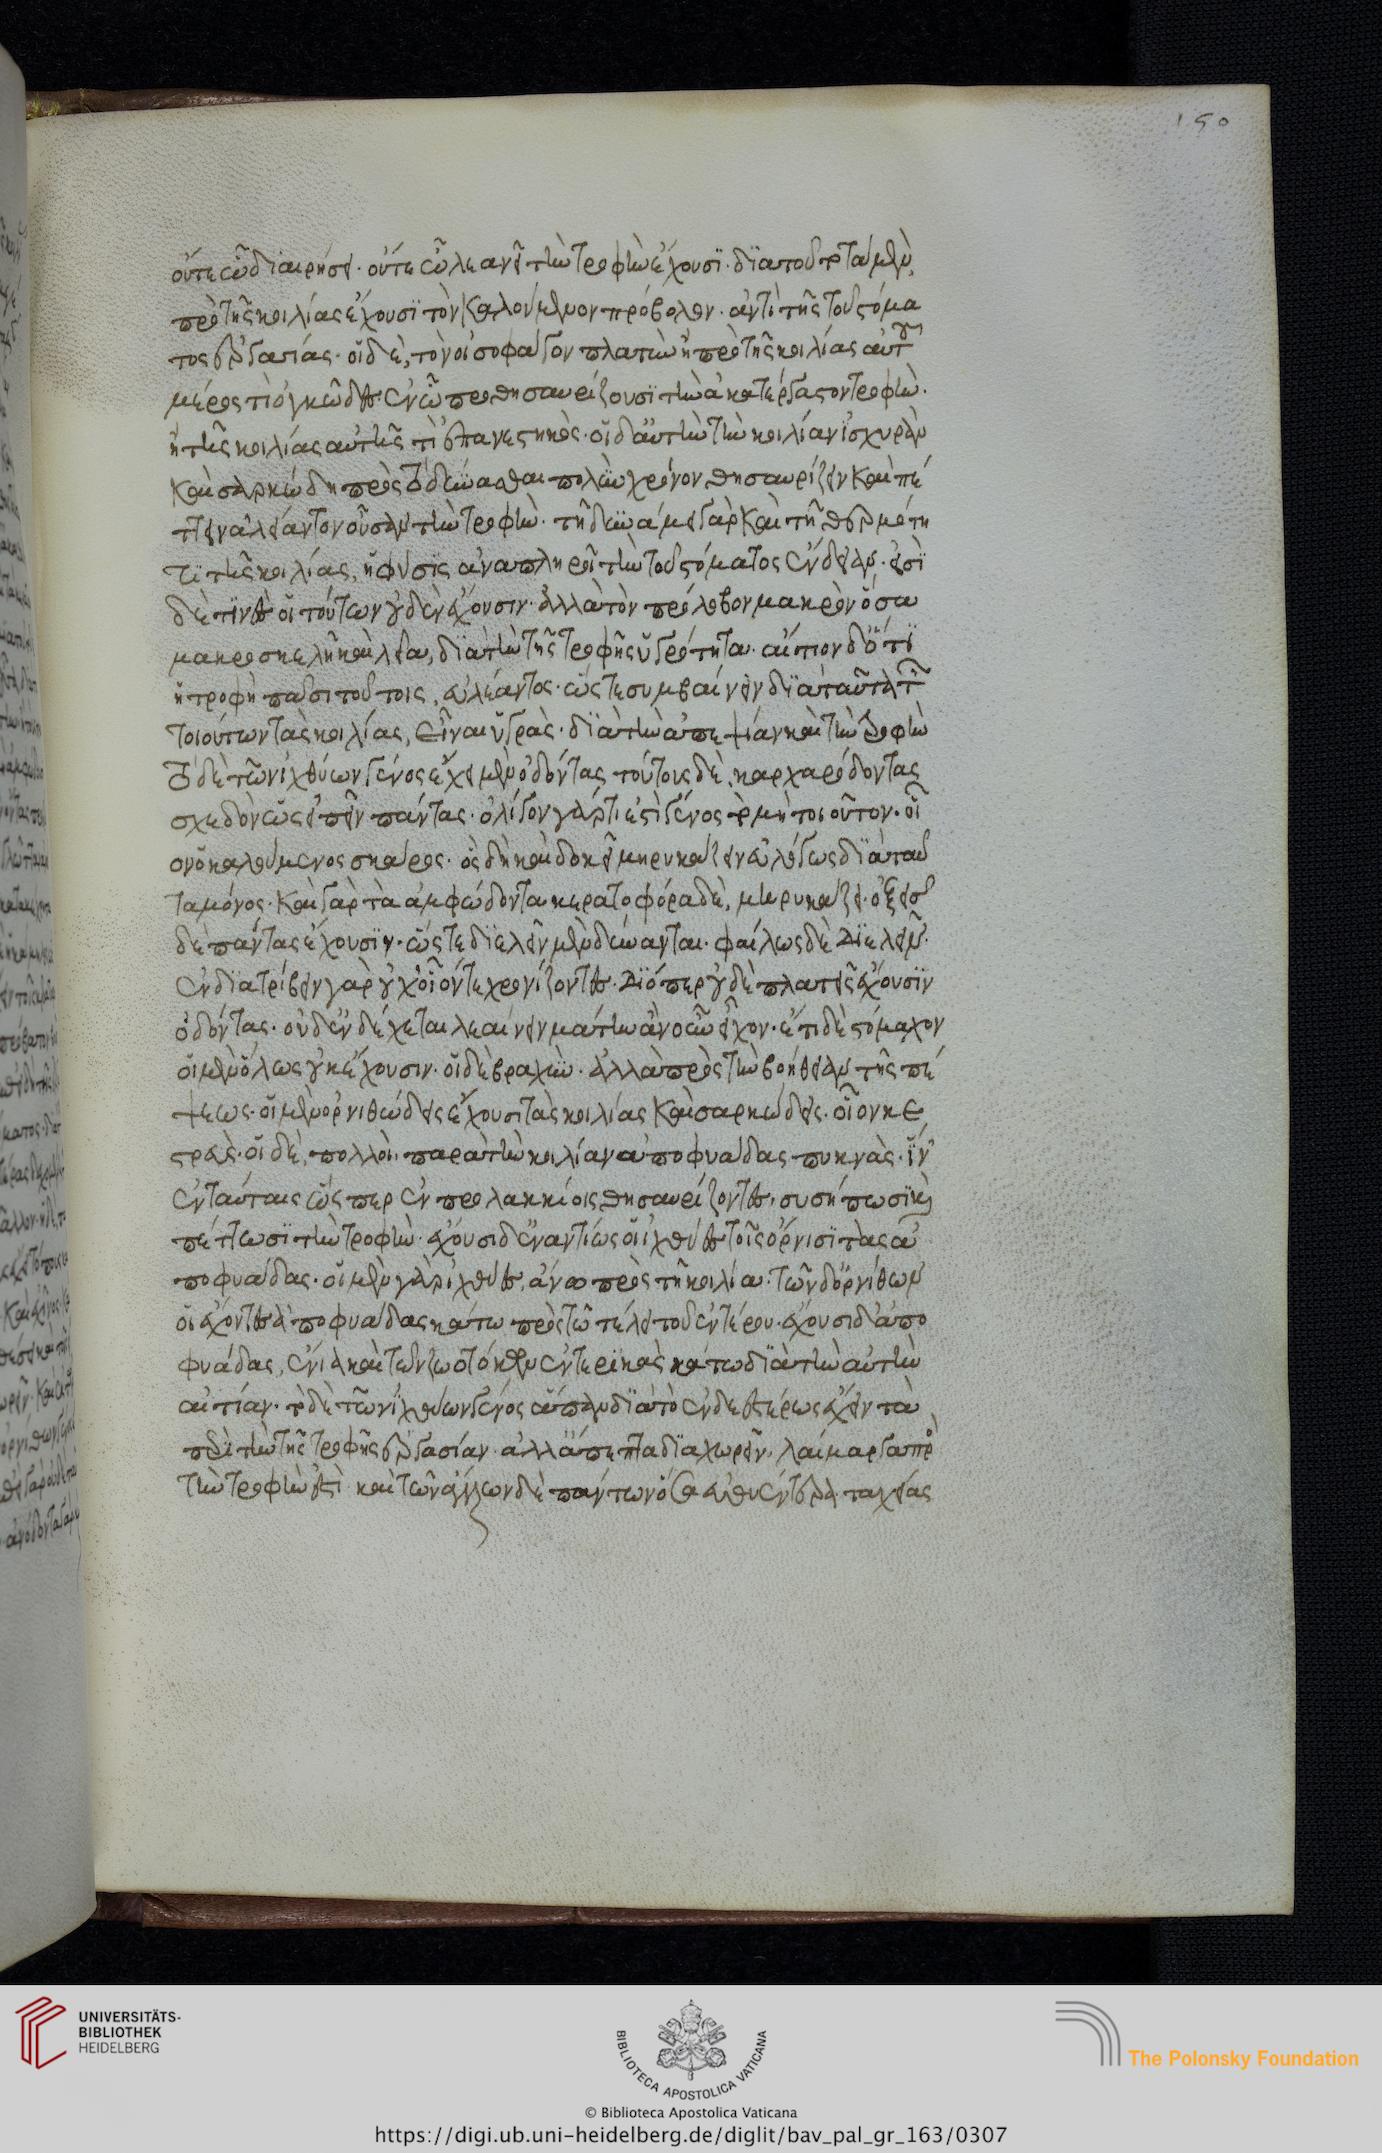 150
οὔτε ᾧ διαιρήσει. οὔτε ᾧ λεανεῖ τὴν τροφὴν ἔχουσι. διαποῦ τὰ μὲν
πρὸ τῆς κοιλίας ἔχουσι τὸν καλούμενον πρόβολον. ἀντὶ τῆς τοῦ στόμα
τος ἐργασίας. οἱ δὲ, τὸν οἰσοφάγον πλατὺν ἢ πρὸ τῆς κοιλίας αὐτοῦ
μέρος τι ὀγκῶδες ἐν ᾧ προθησαυρίζουσι τὴν ἀκατέργαστον τροφὴν.
ἢ τῆς κοιλίας αὐτῆς τι ἐπανεστηκός. οἱ δ' αὐτὴν τὴν κοιλίαν ἰσχυρὰν
καὶ σαρκώδη πρὸς τὸ δύνασθαι πολὺν χρόνον θησαυρίζειν καὶ πέ
ττειν ἀλέαντον οὖσαν τὴν τροφὴν. τῇ δυνάμει γὰρ καὶ τῇ θερμότη
τι τῆς κοιλίας, ἡ φύσις ἀναπληροῖ τὴν τοῦ στόματος ἔνδειαν. εἰσὶ
δέ τινες οἳ τούτων οὐδὲν ἔχουσιν. ἀλλὰ τὸν πρόλοβον μακρὸν ὅσα
μακροσκελῆ καὶ λεῖα, διὰ τὴν τῆς τροφῆς ὑγρότητα. αἴτιον δ' ὅτι
ἡ τροφὴ πᾶσι τούτοις, ἀλέαντος. ὥστε συμβαίνειν διὰ ταῦτα τῶν
τοιούτων τὰς κοιλίας, εἶναι ὑγρὰς. διὰ τὴν ἀπεψίαν καὶ τὴν τροφὴν
τὸ δὲ τῶν ἰχθύων γένος ἔχει μὲν ὀδόντας τούτους δὲ, καρχαρόδοντας
σχεδὸν ὡς εἰπεῖν πάντας. ὀλίγον γὰρ τί ἐστι γένος τὸ μὴ τοιοῦτον. οἷ
ον ὁ καλούμενος σκάρος. ὃς δὴ καὶ δοκεῖ μηρυκάζειν εὐλόγως διὰ ταῦ
τα μόνος. καὶ γὰρ τὰ ἀμφώδοντα κερατοφόρα δὲ, μηρυκάζει. ὀξεῖς
δὲ πάντας ἔχουσιν. ὥστε διελεῖν μὲν δύνανται. φαύλως δὲ διελεῖν.
ἐνδιατρίβειν γὰρ οὐχ οἷόν τε χρονίζοντες. διόπερ οὐδὲ πλατεῖς ἔχουσιν
ὀδόντας. οὐδ' ἐνδέχεται λεαίνειν μάτην ἂν οὖν εἶχον. ἔτι δὲ στόμαχον
οἱ μὲν ὅλως οὐκ ἔχουσιν. οἱ δὲ βραχὺν. ἀλλὰ πρὸς τὴν βοήθειαν τῆς πέ
ψεως. οἱ μὲν ὀρνιθώδεις ἔχουσι τὰς κοιλίας καὶ σαρκώδεις. οἷον κε
στρεὺς. οἱ δὲ, πολλοὶ. παρὰ τὴν κοιλίαν ἀποφυάδας πυκνὰς. ἵν'
ἐν ταύταις ὥσπερ ἐν προλακκίοις θησαυρίζοντες, συσήπωσι καὶ
πέττωσι τὴν τροφὴν. ἔχουσι δ' ἐναντίως οἱ ἰχθύες τοῖς ὄρνισι τὰς ἀ
ποφυάδας. οἱ μὲν γὰρ ἰχθύες, ἄνω πρὸς τῇ κοιλίᾳ. τῶν δ' ὀρνίθων
οἱ ἔχοντες ἀποφυάδας κάτω πρὸς τῷ τέλει τοῦ ἐντέρου. ἔχουσι δ' ἀπο
φυάδας, ἔνια καὶ τῶν ζωοτόκων ἐντερικὰς κάτω διὰ τὴν αὐτὴν
αἰτίαν. τὸ δὲ τῶν ἰχθύων γένος ἅπαν διὰ τὸ ἐνδεεστέρως ἔχειν τὰ
περὶ τὴν τῆς τροφῆς ἐργασίαν. ἀλλ' ἄπεπτα διαχωρεῖν. λαίμαργα πρὸς
τὴν τροφὴν ἐστὶ καὶ τῶν ἄλλων δὲ πάντων ὅσα εὐθυέντερα ταχείας
UNIVERSITÄTS-
BIBLIOTHEK
HEIDELBERG
BIBLIOTECA APOSTOLICA VATICANA
The Polonsky Foundation
© Biblioteca Apostolica Vaticana
https://digi.ub.uni-heidelberg.de/diglit/bav_pal_gr_163/0307